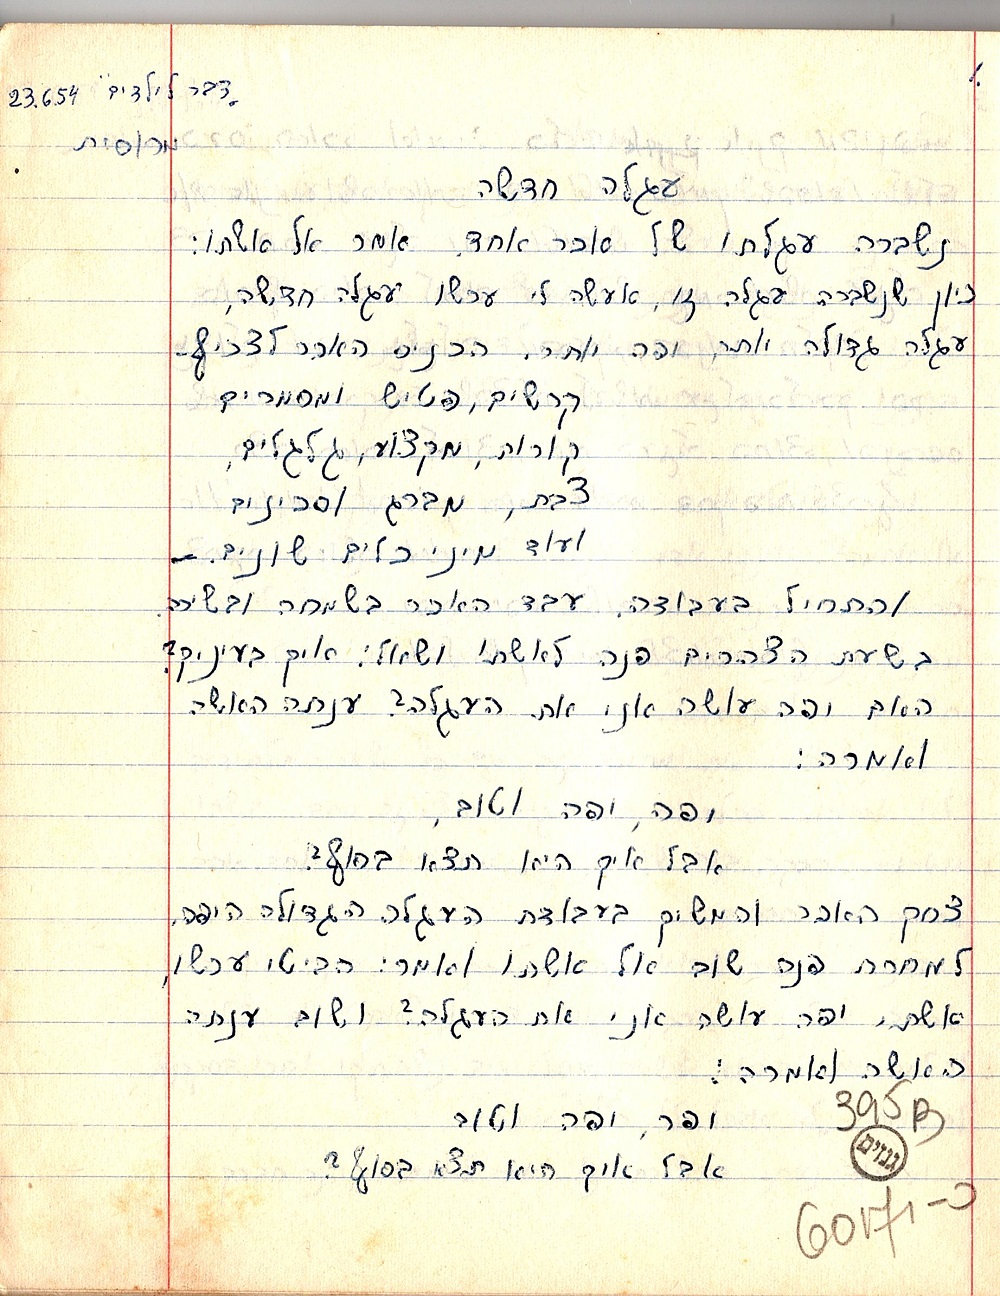 1.
"דבר לילדים" 23.6.54
מרוסית
עגלה חדשה
נשברה עגלתו של אכר אחד. אמר אל אשתו:
כיון שנשברה עגלה זו, אעשה לי עכשו עגלה חדשה,
עגלה גדולה יותר, ופה יותר. הכניס האכר לצריף-
קרשים, פטיש ומסמרים
קורות, מקצוע, גלגלים,
צבת, מברג וסכינים
ועוד מיני כלים שונים. –
והתחיל בעבודה. עבד האכר בשמחה ובשירה.
בשעת הצהרים פנה לאשתו ושאל: איך בעיניך?
האם יפה עושה אני את העגלה? ענתה האשה
ואמרה:
יפה, יפה וטוב,
אבל איך היא תצא בסוף?
צחק האכר והמשיך בעבודת העגלה הגדולה היפה.
למחרת פנה שוב אל אשתו ואמר: הביטי עכשו,
אשתי, יפה עושה אני את העגלה? ושוב ענתה
האשה ואמרה:
יפה, יפה וטוב
אבל איך היא תצא בסוף?
395 B
גנזים
כ-60171